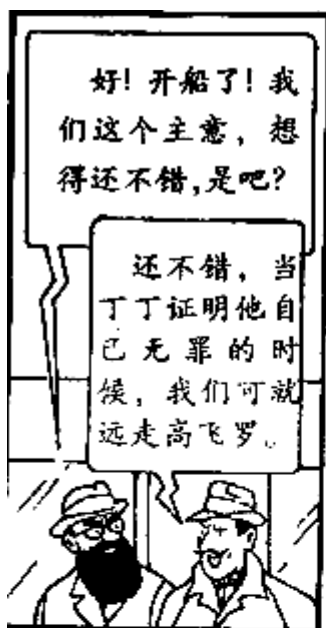 好！开船了！我
们这个主意，想
得还不错，是吧？
还不错，当
丁丁证明他自
己无罪的时
候，我们可就
远走高飞罗。